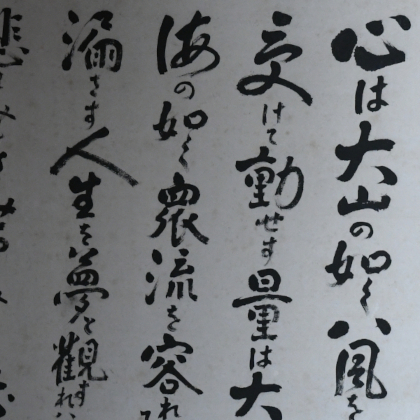 心は大山の如く八風を
受けて動せす量は大
海の如く衆流を容れ
漏さす人生を夢と觀すれは
悲